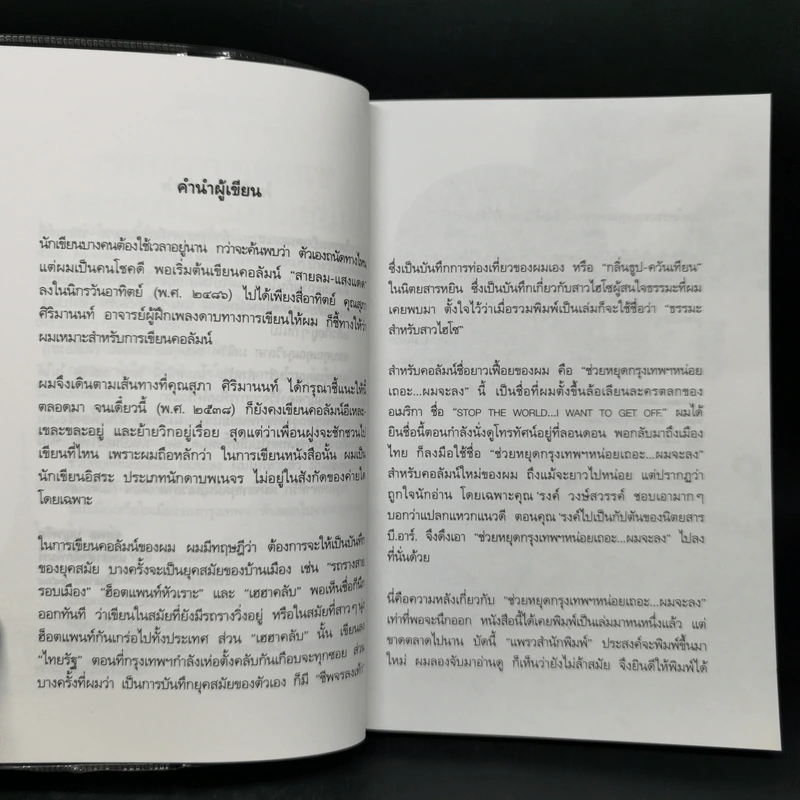 คำนำผู้เขียน
นักเขียนบางคนต้องใช้เวลาอยู่นาน กว่าจะค้นพบว่า ตัวเองถนัดทางไหน
แต่ผมเป็นคนโชคดี พอเริ่มต้นเขียนคอลัมน์ "สายลม-แสงแดด"
ลงในนิกรวันอาทิตย์ (พ.ศ. ๒๔๘๖) ไปได้เพียงสี่อาทิตย์ คุณสุภา
ศิริมานนท์ อาจารย์ผู้ฝึกเพลงดาบทางการเขียนให้ผม ก็ชี้ทางให้ว่า
ผมเหมาะสำหรับการเขียนคอลัมน์
ผมจึงเดินตามเส้นทางที่คุณสุภา ศิริมานนท์ ได้กรุณาชี้แนะให้นี้
ตลอดมา จนเดี๋ยวนี้ (พ.ศ. ๒๕๓๘) ก็ยังคงเขียนคอลัมน์อีเหละ
เขละขละอยู่ และย้ายวิกอยู่เรื่อย สุดแต่ว่าเพื่อนฝูงจะชักชวนไป
เขียนที่ไหน เพราะผมถือหลักว่า ในการเขียนหนังสือนั้น ผมเป็น
นักเขียนอิสระ ประเภทนักดาบพเนจร ไม่อยู่ในสังกัดของค่ายใด
โดยเฉพาะ
ในการเขียนคอลัมน์ของผม ผมมีทฤษฎีว่า ต้องการจะให้เป็นบันทึก
ของยุคสมัย บางครั้งจะเป็นยุคสมัยของบ้านเมือง เช่น "รถรางสาย
รอบเมือง" "ฮ็อตแพนท์หัวเราะ" และ "เฮฮาคลับ" พอเห็นชื่อก็นึก
ออกทันที ว่าเขียนในสมัยที่ยังมีรถรางวิ่งอยู่ หรือในสมัยที่สาวๆ นุ่ง
ฮ็อตแพนท์กันเกร่อไปทั้งประเทศ ส่วน "เฮฮาคลับ" นั้น เขียนลง
"ไทยรัฐ" ตอนที่กรุงเทพฯกำลังเห่อตั้งคลับกันเกือบจะทุกซอย ส่วน
บางครั้งที่ผมว่า เป็นการบันทึกยุคสมัยของตัวเอง ก็มี "ชีพจรลงเท้า"
ซึ่งเป็นบันทึกการท่องเที่ยวของผมเอง หรือ "กลิ่นธูป-ควันเทียน"
ในนิตยสารหยิน ซึ่งเป็นบันทึกเกี่ยวกับสาวไฮโซผู้สนใจธรรมะที่ผม
เคยพบมา ตั้งใจไว้ว่าเมื่อรวมพิมพ์เป็นเล่มก็จะใช้ชื่อว่า "ธรรมะ
สำหรับสาวไฮโซ"
สำหรับคอลัมน์ชื่อยาวเฟื้อยของผม คือ "ช่วยหยุดกรุงเทพฯหน่อย
เถอะ...ผมจะลง" นี้ เป็นชื่อที่ผมตั้งขึ้นล้อเลียนละครตลกของ
อเมริกา ชื่อ "STOP THE WORLD...I WANT TO GET OFF." ผมได้
ยินชื่อนี้ตอนกำลังนั่งดูโทรทัศน์อยู่ที่ลอนดอน พอกลับมาถึงเมือง
ไทย ก็ลงมือใช้ชื่อ "ช่วยหยุดกรุงเทพฯหน่อยเถอะ...ผมจะลง"
สำหรับคอลัมน์ใหม่ของผม ถึงแม้จะยาวไปหน่อย แต่ปรากฏว่า
ถูกใจนักอ่าน โดยเฉพาะคุณ 'รงค์ วงษ์สวรรค์ ชอบเอามากๆ
บอกว่าแปลกแหวกแนวดี ตอนคุณ 'รงค์ไปเป็นกัปตันของนิตยสาร
บี.อาร์. จึงดึงเอา "ช่วยหยุดกรุงเทพฯหน่อยเถอะ...ผมจะลง" ไปลง
ที่นั่นด้วย
นี่คือความหลังเกี่ยวกับ "ช่วยหยุดกรุงเทพฯหน่อยเถอะ...ผมจะลง"
เท่าที่พอจะนึกออก หนังสือนี้ได้เคยพิมพ์เป็นเล่มมาหนหนึ่งแล้ว แต่
ขาดตลาดไปนาน บัดนี้ "แพรวสำนักพิมพ์" ประสงค์จะพิมพ์ขึ้นมา
ใหม่ ผมลองจับมาอ่านดู ก็เห็นว่ายังไม่ล้าสมัย จึงยินดีให้พิมพ์ได้